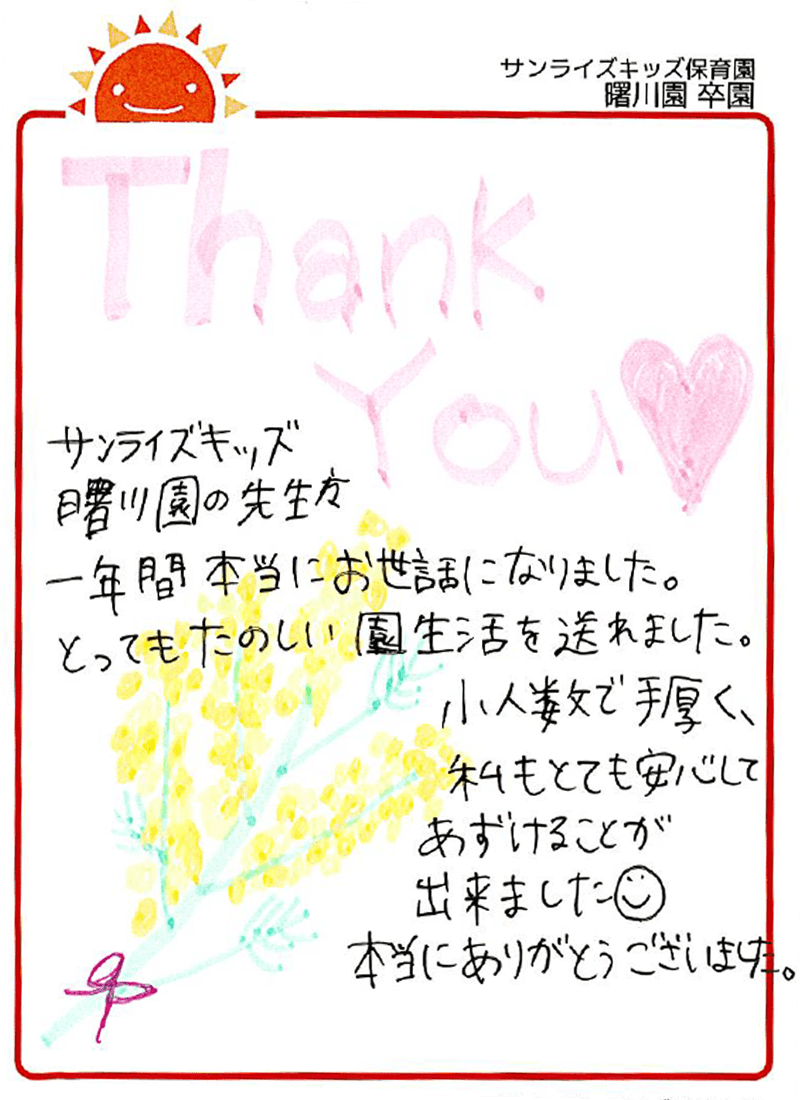 サンライズキッズ保育園
曙川園 卒園
Thank
You
サンライズキッズ
曙川園の先生方
一年間本当にお世話になりました。
とってもたのしい園生活を送れました。
小人数で手厚く、
私もとても安心して
あずけることが
出来ました
本当にありがとうございました。